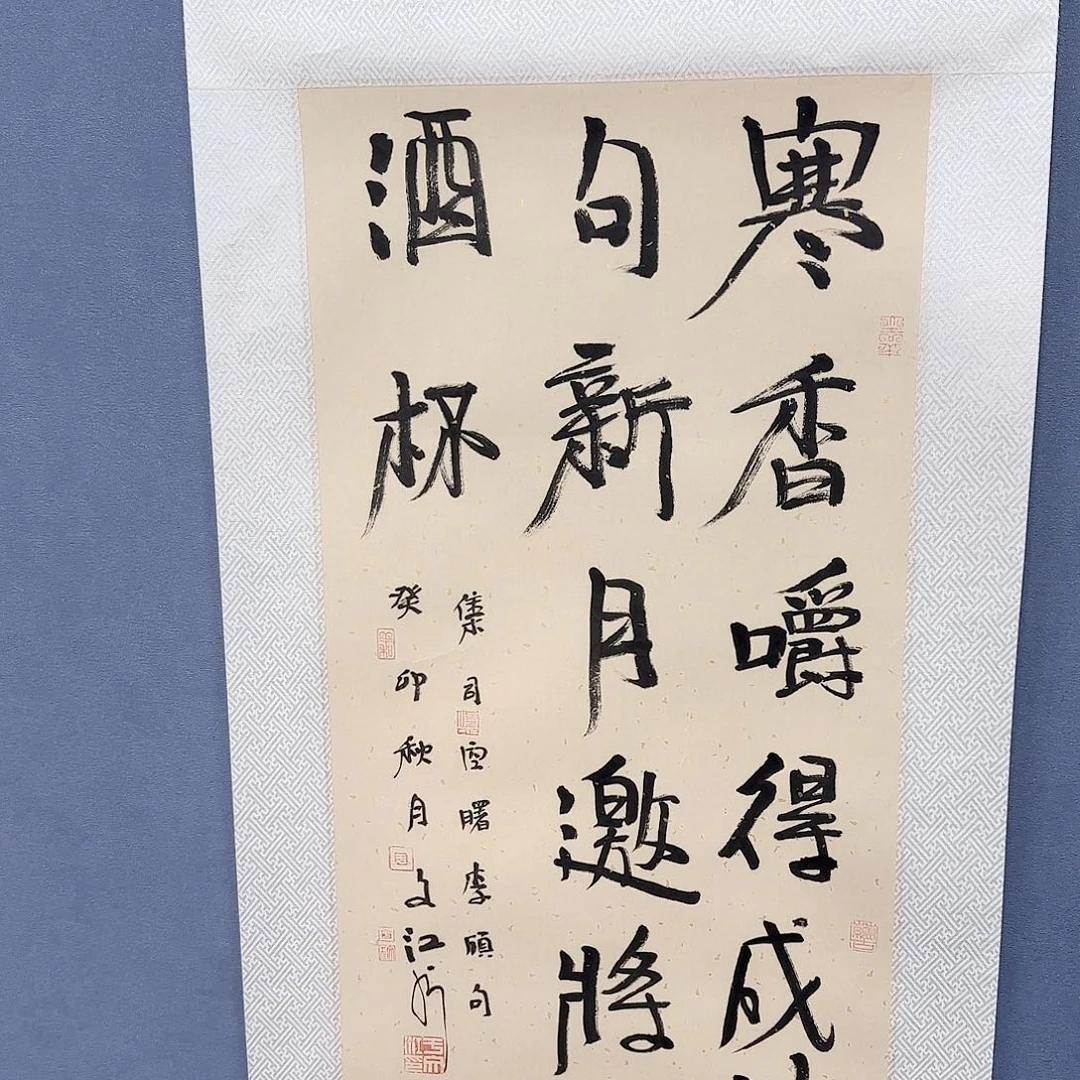 寒香嚼得成
句新月邀將
酒杯
集司空曙李頎句
癸卯秋月文江